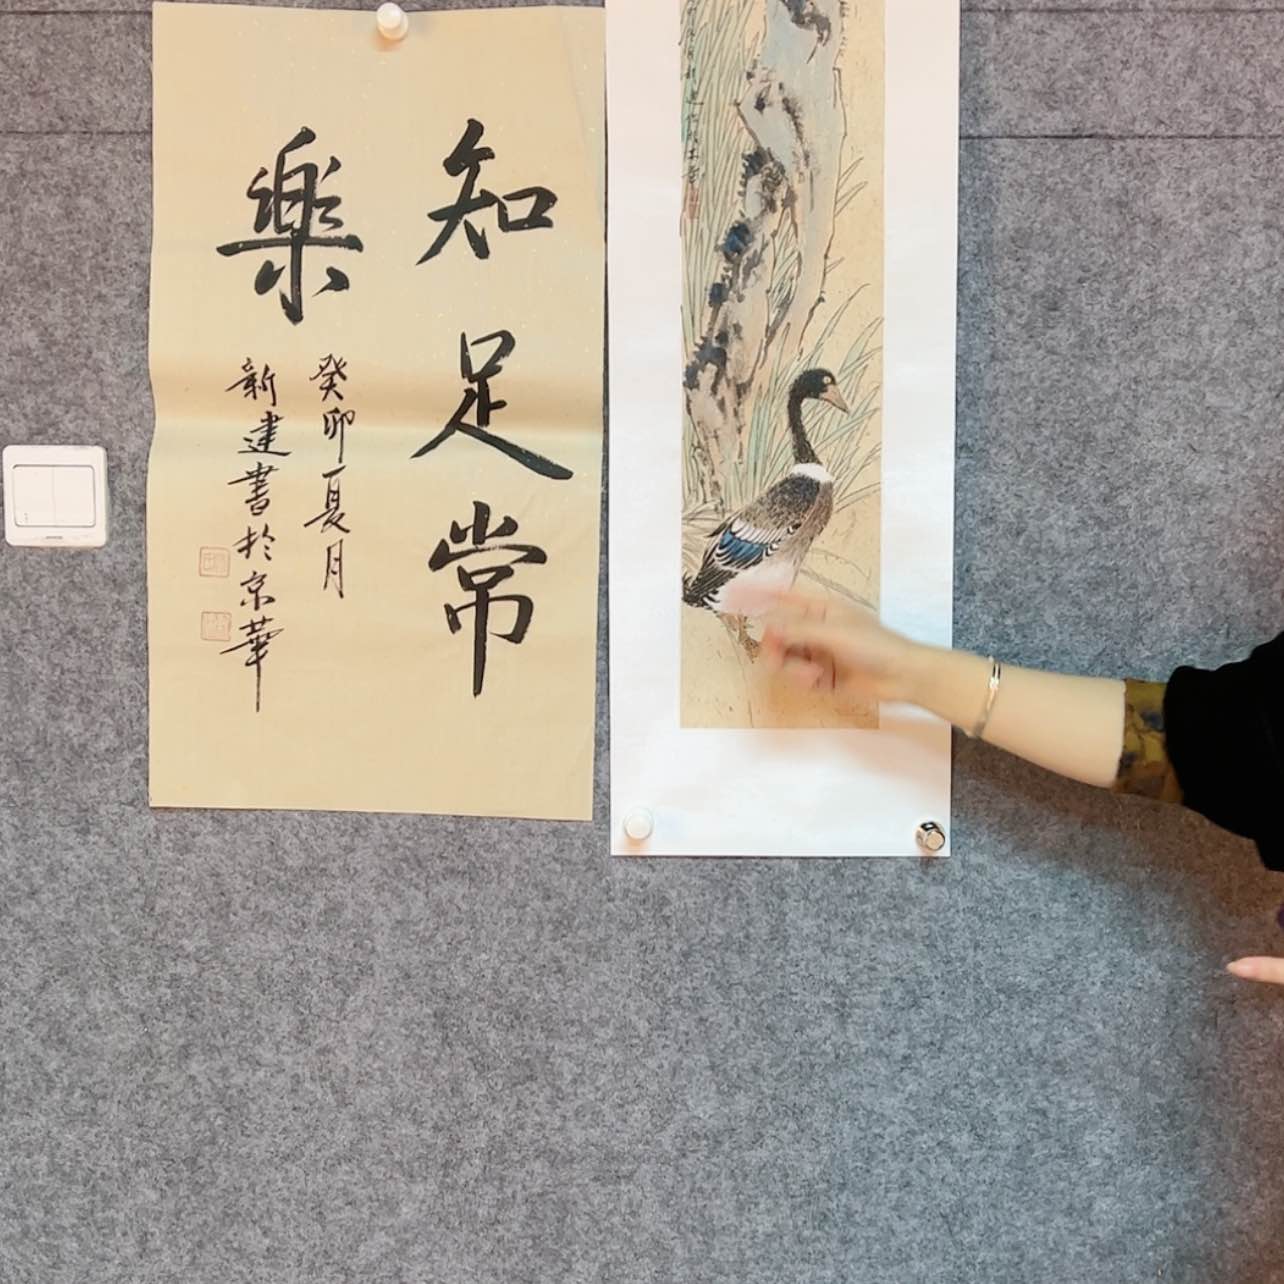 知足常
樂
癸卯夏月
新建書於京華